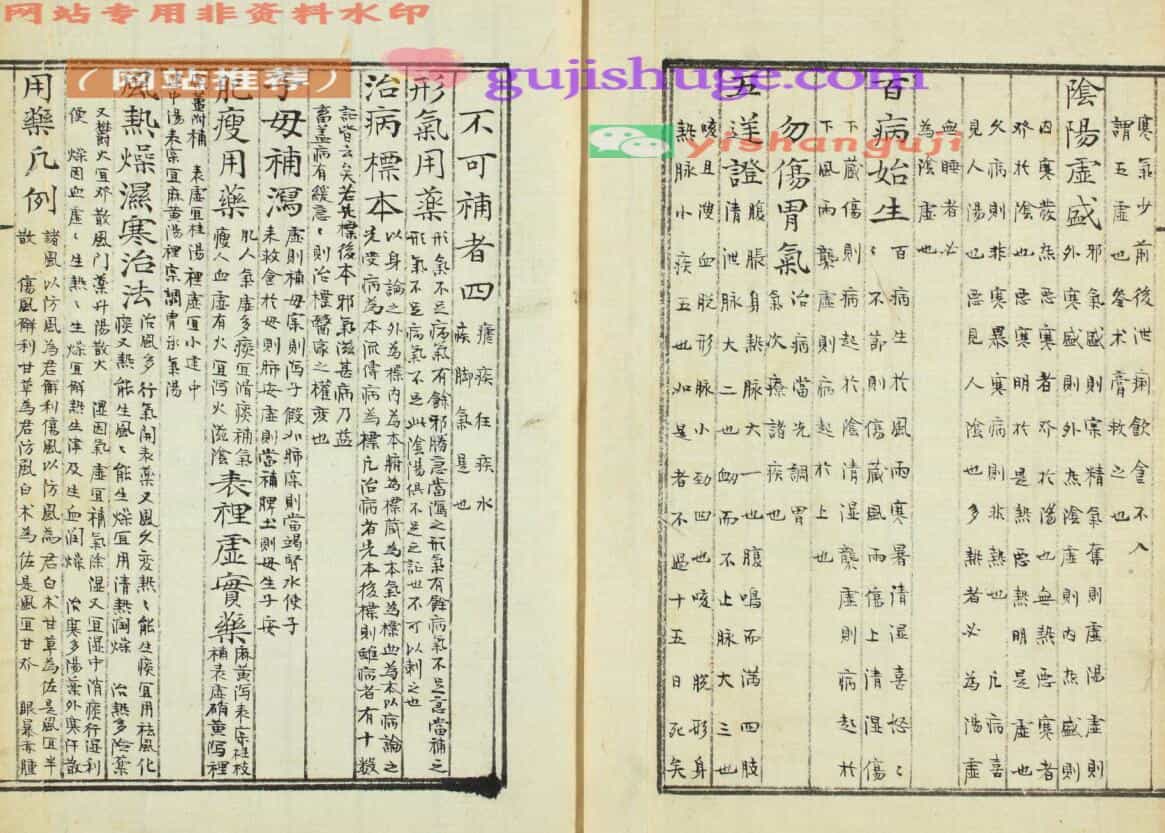 网站专用非资料水印
(网站推荐)
gujishuge.com
yishanguji
寒氣少前後泄痢飮食不入
謂五虛也參术膏救之也
陰陽虛盛
邪氣盛則實精氣奪則虛陽虛則
外寒盛則外热陰虛則內热盛則
內寒發热惡寒者夯於陽也無熱惡寒者
夯於陰也惡寒明於是熱惡熱明是虛也
久病則非寒暴寒病則非熱也凡病喜
見人陽也惡見人陰也多熱者必為陽虛
血睡者必
為陰虛也
百病始生
百病生於風雨寒暑清湿喜怒〻
〻不節則傷藏風雨傷上清湿傷
下藏傷則病起於陰清湿襲虛則病起於
下風雨襲虛則病起於上也
勿傷胃氣
治病當先調胃
氣次療諸疾也
五逆證
腹脹身熱脉大一也腹鳴而滿四肢
清泄脉大二也衄而不止脉大三也
咳且溲血脱形脉小劲四也咳脱形身
熱脉小疾五也如是者不過十五日死矣
不可補者四
瘧疾狂疾水
疾脚氣是也
形氣用藥
形氣不足病氣有餘邪勝急當瀉之形氣有餘病氣不足急當補之
形氣不足病氣不足此陰陽俱不足之証也不可以刺之也
治病標本
以身論之外為標內為本腑為標藏為本氣為標血為本以病論之
先受病為本流傳病為標凡治病者先本後標則雖病者有十数
証皆去矣若先標後本邪氣滋甚病乃益
畜盖病有緩急〻則治標醫家之權变也
子母補瀉
虛則補母实則瀉子假如肺实則當竭腎水使子
來救食於母則肺安虛則當補脾土則母生子安
肥瘦用藥
肥人氣虛多痰宜滑痰補氣
瘦人血虛有火宜瀉火滋陰
表裡虛實藥
麻黃瀉表实桂枝
補表虛硝黃瀉裡
黃附補 表虛宜桂湯裡虛宜小建中
中湯表实宜麻黃湯裡实調胃承氣湯
風熱燥濕寒治法
治風多行氣開表藥又風久变熱〻能生痰宜用祛風化
痰又熱能生風〻能生燥宜用清熱潤燥 治熱多陰藥
又鬱火宜夯散風門藥升陽散火 濕因氣虛宜補氣除湿又宜湿中消痰行湿利
便 燥因血虛〻生熱〻生燥宜解熱生津及生血润燥 治寒多陽藥外寒仟散
用藥凡例
諸風以防風為君解利傷風以防風為君白朮甘草為佐是風宜半
散 傷風解利甘草為君防風白朮為佐是風宜甘夯 眼暴赤腫